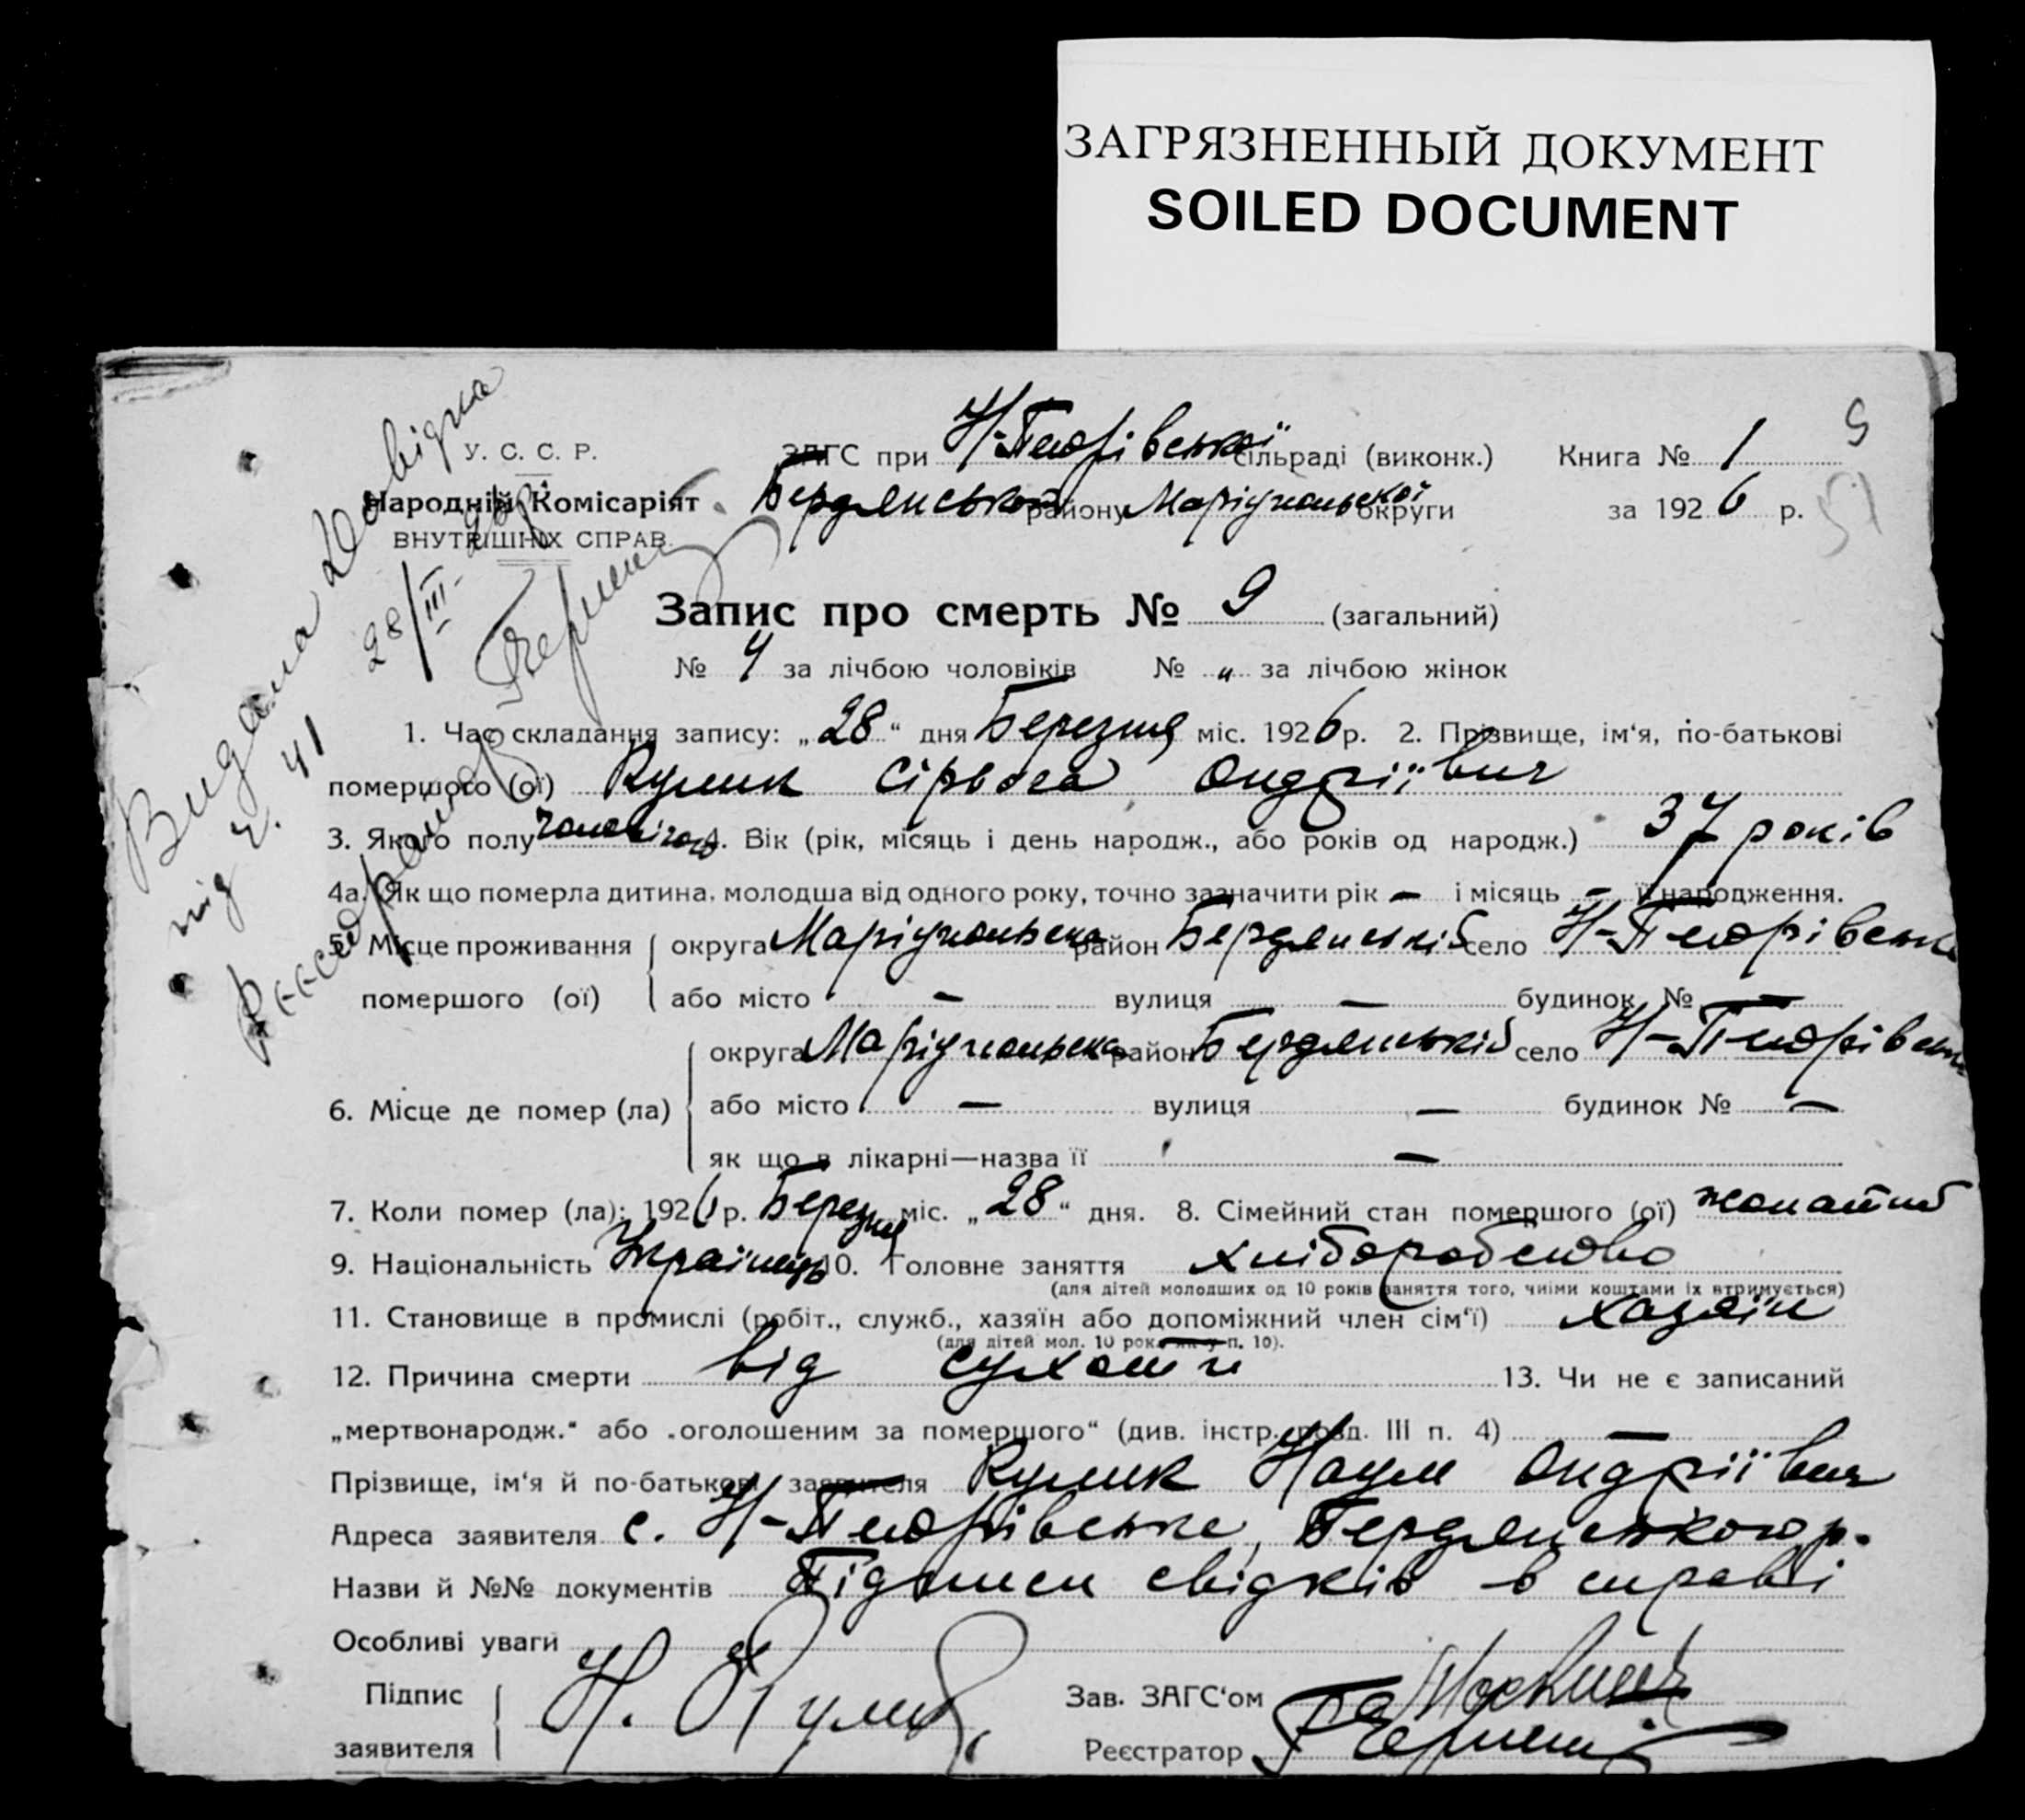 ЗАГРЯЗНЕННЫЙ ДОКУМЕНТ
SOILED DOCUMENT
У. С. С. Р.
Народній Комісаріят
ВНУТРІШНІХ СПРАВ.
ЗАГС при сільраді (виконк.)
Бердянського району Маріупольської округи
Книга № 1
за 1926 р.
Видана Довідка
28/III-26р.
під ч. 41
Реєстратор
Запис про смерть № 9 (загальний)
№ 4 за лічбою чоловіків № „ за лічбою жінок
1. Час складання запису: „28“ дня Березня міс. 1926 р. 2. Прізвище, ім‘я, по-батькові
помершого (ої) Кулик Сірьога Ондріївич
3. Якого полу чоловічого 4. Вік (рік, місяць і день народж., або років од народж.) 37 років
4а. Як що померла дитина, молодша від одного року, точно зазначити рік – і місяць – її народження.
5. Місце проживання округа Маріупольська район Бердянській село
помершого (ої) або місто – вулиця – будинок № –
округа Маріупольська район Бердянській село
6. Місце де помер (ла) або місто – вулиця – будинок № –
як що в лікарні—назва її –
7. Коли помер (ла): 1926 р. Березня міс. „28“ дня. 8. Сімейний стан помершого (ої) жонатий
9. Національність Українець 10. Головне заняття хліборобство
(для дітей молодших од 10 років заняття того, чиїми коштами їх втримується)
11. Становище в промислі (робіт., служб., хазяїн або допоміжний член сім‘ї) хазяїн
(для дітей мол. 10 рок. як у п. 10).
12. Причина смерти від сухоти 13. Чи не є записаний
„мертвонародж.“ або „оголошеним за помершого“ (див. інстр. розд. III п. 4) –
Прізвище, ім‘я й по-батькові заявителя Кулик Наум Ондріївич
Адреса заявителя с. Бердянського р.
Назви й №№ документів Підписи свідків в справі
Особливі уваги
Підпис
заявителя Н. Кулик
Зав. ЗАГС‘ом
Реєстратор